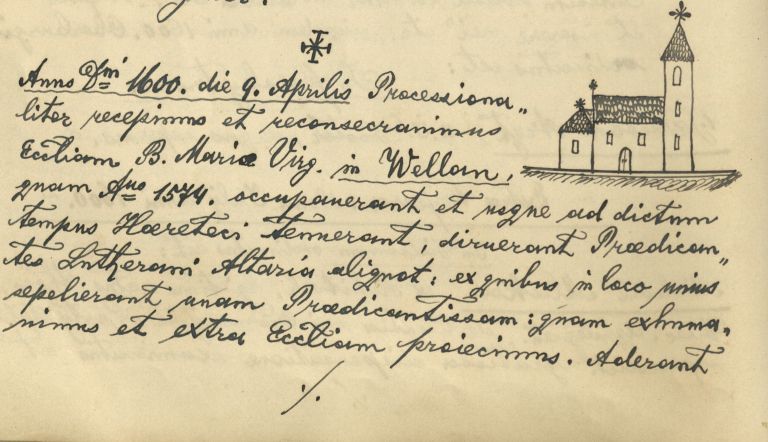 Anno Dmi 1600. die 9. Aprilis Processiona„
liter recepimus et reconsecravimus
Eccliam B. Mariæ Virg. in Wellan,
quam Ano 1574. occupauerant et usque ad dictum
tempus Hæreteci tenuerant, diruerant Prædican„
tes Lutherani Altaria aliquot: ex quibus in loco unius
sepelierant unam Prædicantissam: quam exhuma„
uimus et extra Eccliam proiecimus. Aderant
./.